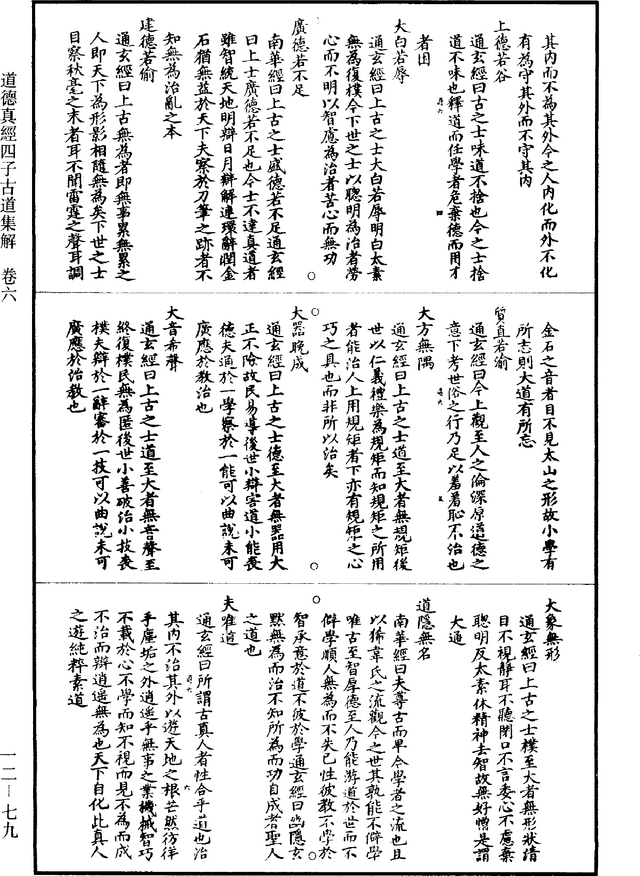 其內而不為其外今之人內化而外不化
有為守其外而不守其內
上德若谷
通玄經曰古之士味道不捨也今之士捨
道不味也釋道而任學者危棄德而用才
者困
大白若辱
通玄經曰上古之士大白若辱明白太素
無為復樸今下世之士以聰明為治者勞
心而不明以智慮為治者苦心而無功
廣德若不足
南華經曰上古之士盛德若不足通玄經
曰上士廣德若不足也今士不達真道者
雖智統天地明辯日月辯解連環辭潤金
石猶無益於天下夫察於刀筆之跡者不
知無為治亂之本
建德若偷
通玄經曰上古無為者即無事累無累之
人即天下為形影相隨無為矣下世之士
目察秋毫之末者耳不聞雷霆之聲耳調
金石之音者目不見太山之形故小學有
所志則大道有所忘
質直若渝
通玄經曰今上觀至人之倫深原道德之
意下考世俗之行乃足以羞恥不治也
大方無隅
通玄經曰上古之士道至大者無規矩後
世以仁義禮樂為規矩而知規矩之所用
者能治人上用規矩者下亦有規矩之心
巧之具也而非所以治矣
大器晚成
通玄經曰上古之士德至大者無器用大
正不險故民易導後世小辯害道小能喪
德夫通於一學察於一能可以曲說未可
廣應於教治也
大音希聲
通玄經曰上古之士道至大者無音聲至
終復樸民無為匿後世小善破治小技喪
樸夫辯於一辭審於一技可以曲說未可
廣應於治教也
大象無形
通玄經曰上古之士樸至大者無形狀清
目不視靜耳不聽閉口不言委心不慮棄
聰明反太素休精神去智故無好憎是謂
大通
道隱無名
南華經曰夫尊古而卑今學者之流也且
以狶韋氏之流觀今之世其孰能不僻學
唯古至智厚德至人乃能游道於世而不
僻學順人無為而不失己性彼教不學於
智承意於道不彼於學通玄經曰幽隱玄
默無為而治不知所為而功自成者聖人
之道也
夫唯道
通玄經曰所謂古真人者性合乎道也治
其內不治其外以遊天地之根芒然彷徉
乎塵垢之外逍遥乎無事之業機械智巧
不載於心不學而知不視而見不為而成
不治而辯逍遥無為也天下自化此真人
之遊純粹素道
道德真經四子古道集解　卷六
一二－七九